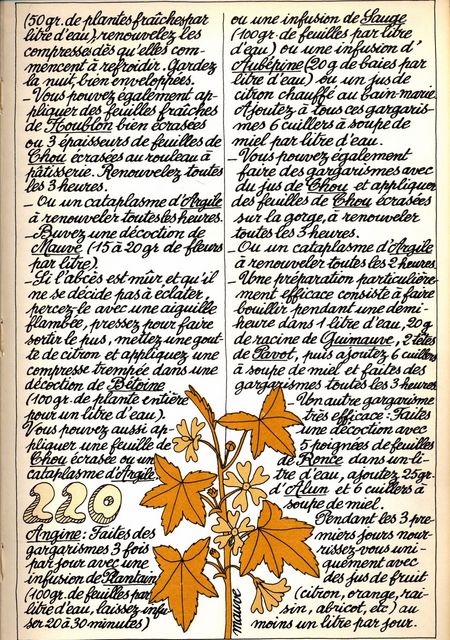 (50 gr. de plantes fraîches par
litre d'eau), renouvelez les
compresses dès qu'elles com-
mencent à refroidir. Gardez
la nuit, bien enveloppées.
_Vous pouvez également ap-
pliquer des feuilles fraîches
de Houblon bien écrasées
ou 3 épaisseurs de feuilles de
Chou écrasées au rouleau à
pâtisserie. Renouvelez toutes
les 3 heures.
_ Ou un cataplasme d'Argile
à renouveler toutes les heures.
_Buvez une décoction de
Mauve (15 à 20 gr de fleurs
par litre)
_Si l'abcès est mûr et qu'il
ne se décide pas à éclater,
percez-le avec une aiguille
flambée, pressez pour faire
sortir le pus, mettez une gout-
te de citron et appliquez une
compresse trempée dans une
décoction de Bétoine
(100 gr. de plante entière
pour un litre d'eau).
Vous pouvez aussi ap-
pliquer une feuille de
Chou écrasée ou un
cataplasme d'Argile
220
Angine: Faites des
gargarismes 3 fois
par jour avec une
infusion de Plantain
(100 gr. de feuilles par
litre d'eau, laissez infu
ser 20 à 30 minutes)
ou une infusion de Sauge
(100 gr. de feuilles par litre
d'eau) ou une infusion d'
Aubépine (20 g de baies par
litre d'eau) ou un jus de
citron chauffé au bain-marie.
Ajoutez à tous ces gargaris-
mes 6 cuillers à soupe de
miel par litre d'eau.
_Vous pouvez également
faire des gargarismes avec
du jus de Chou et appliquer
des feuilles de Chou écrasées
sur la gorge, à renouveler
toutes les 3 heures.
_Ou un cataplasme d'Argile
à renouveler toutes les 2 heures.
_Une préparation particulière-
ment efficace consiste à faire
bouillir pendant une demi-
heure dans 1 litre d'eau, 20 g
de racine de Guimauve, 2 têtes
de Pavot, puis ajoutez 6 cuillers
à soupe de miel et faites des
gargarismes toutes les 3 heures
Un autre gargarisme
très efficace : Faites
une décoction avec
5 poignées de feuilles
de Ronce dans un li-
tre d'eau, ajoutez 25 gr.
d'Alun et 6 cuillers à
soupe de miel.
Pendant les 3 pre-
miers jours nour-
rissez-vous uni-
quement avec
des jus de fruit
(citron, orange, rai-
sin, abricot, etc) au
moins un litre par jour.
mauve